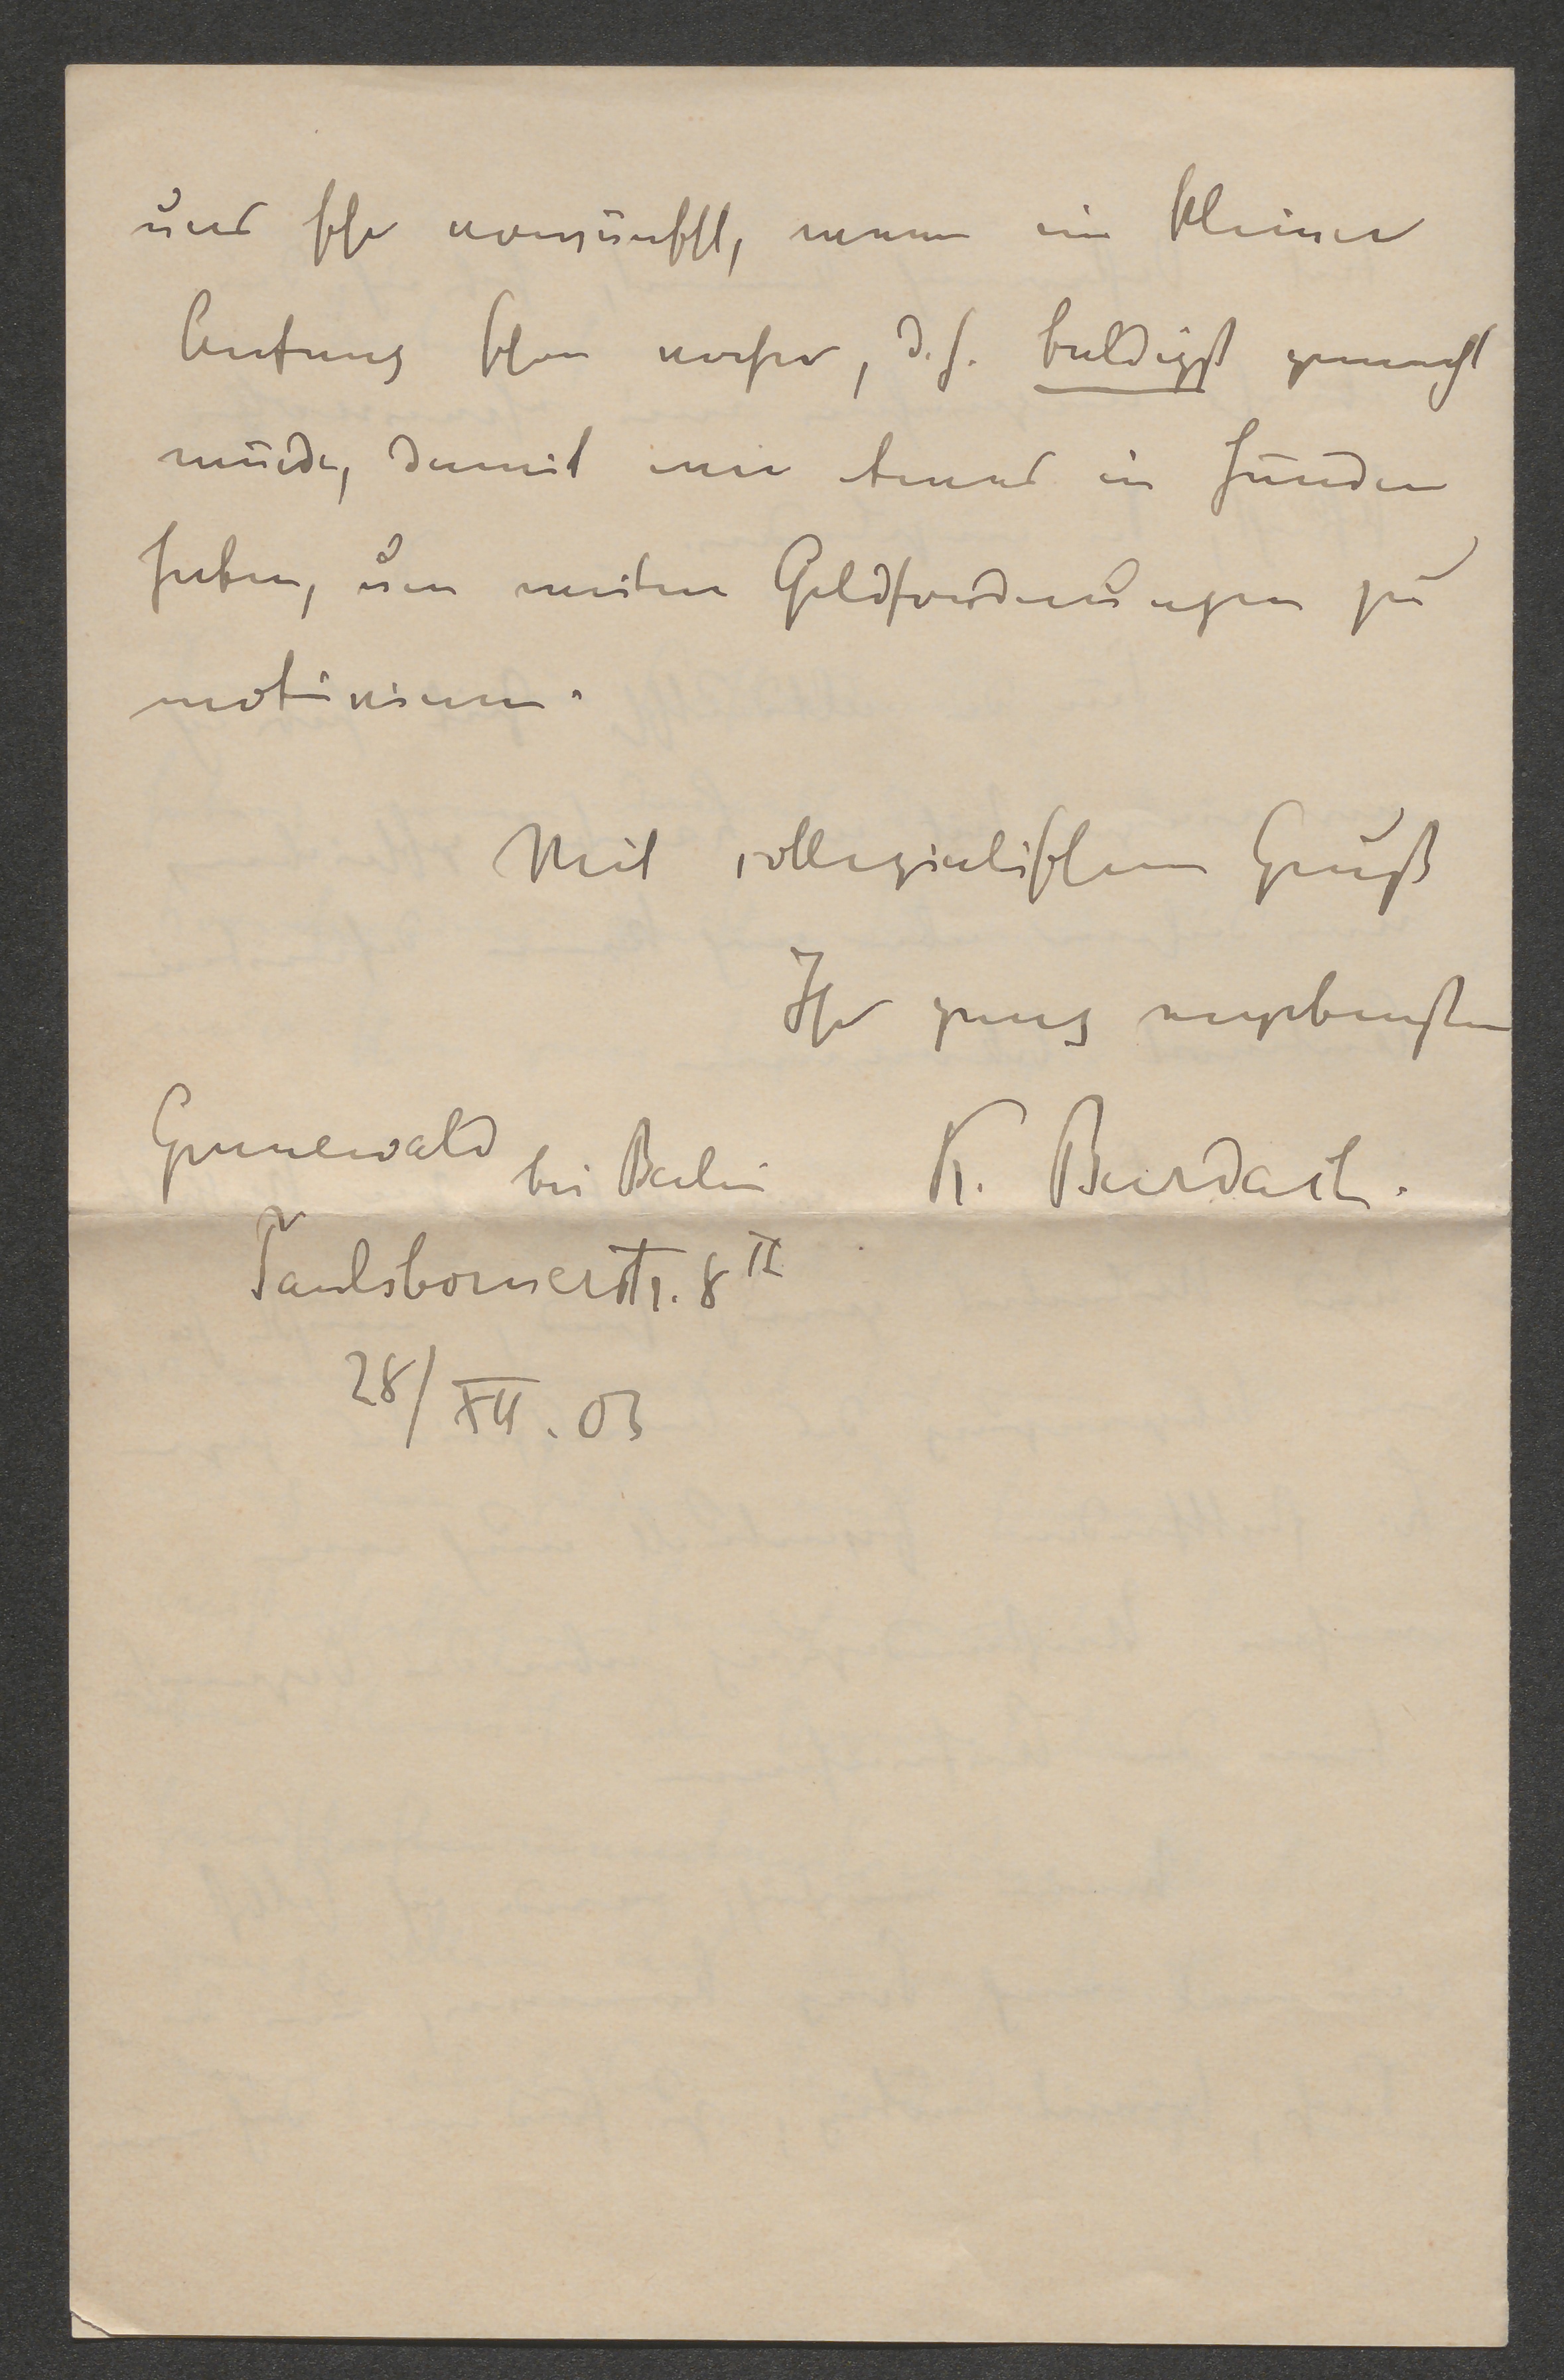 uns sehr erwünscht, wenn ein kleiner
Anfang schon vorher, d. h. baldigst gemacht
würde, damit wir etwas in Händen
haben, um weitere Geldforderungen zu
motivieren.
Mit kollegialischem Gruß
Ihr ganz ergebenster
Grunewald bei Berlin K. Burdach.
Paulsbornerstr. 8 II
28/XII. 03